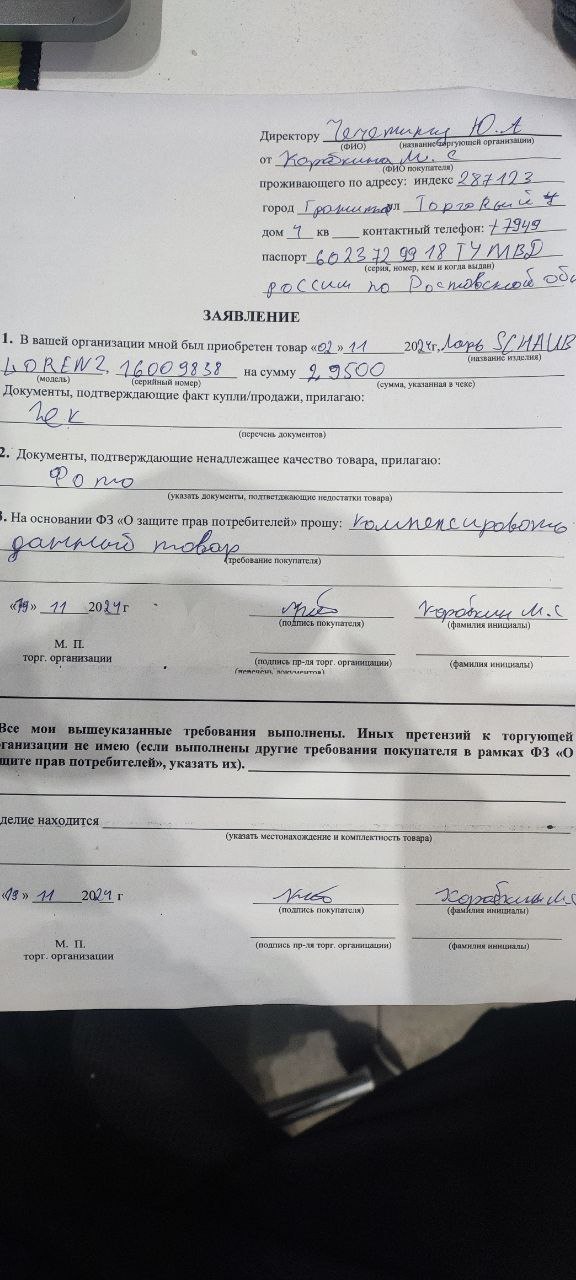 Директору Чечеткину Ю.А
(ФИО) (название торгующей организации)
от Коробкина М. С
(ФИО покупателя)
проживающего по адресу: индекс 287123
город ул Торговый
дом 4 кв контактный телефон: +7949
паспорт 6023 72 99 18 ГУ МВД
(серия, номер, кем и когда выдан)
россии по Ростовской обл
ЗАЯВЛЕНИЕ
1. В вашей организации мной был приобретен товар «02» 11 2024г, Ларь SCHAUB
(название изделия)
LORENZ, 16009838 на сумму 29500
(модель) (серийный номер) (сумма, указанная в чеке)
Документы, подтверждающие факт купли/продажи, прилагаю:
Чек
(перечень документов)
2. Документы, подтверждающие ненадлежащее качество товара, прилагаю:
Фото
(указать документы, подтветджающие недостатки товара)
3. На основании ФЗ «О защите прав потребителей» прошу: компенсировать
данный товар
(требование покупателя)
«19» 11 2024г Коробкин М.С
(подпись покупателя) (фамилия инициалы)
М. П.
торг. организации
(подпись пр-ля торг. органицации) (фамилия инициалы)
(перечень документов)
Все мои вышеуказанные требования выполнены. Иных претензий к торгующей
рганизации не имею (если выполнены другие требования покупателя в рамках ФЗ «О
щите прав потребителей», указать их).
делие находится
(указать местонахождение и комплектность товара)
«19» 11 2024 г Коробкин М.С
(подпись покупателя) (фамилия инициалы)
М. П.
торг. организации
(подпись пр-ля торг. органицации) (фамилия инициалы)